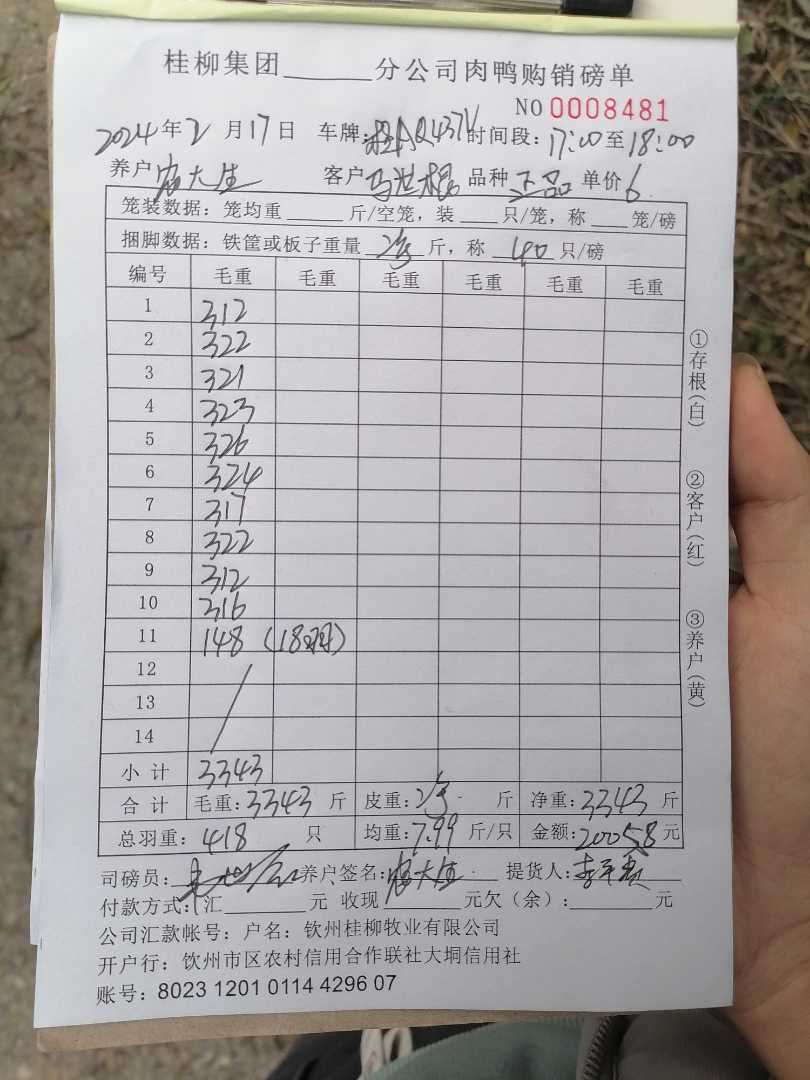 桂柳集团______分公司肉鸭购销磅单
NO 0008481
2024年2月17日 车牌:桂AQ437V 时间段:17:00至18:00
养户 大生 客户 马世 品种 正品 单价 6
笼装数据: 笼均重______斤/空笼, 装____只/笼, 称____笼/磅
捆脚数据: 铁筐或板子重量 斤, 称 40 只/磅
编号 毛重 毛重 毛重 毛重 毛重 毛重
1 312
2 322
3 321
4 323
5 326
6 324
7 317
8 322
9 312
10 316
11 148 (18羽)
12
13
14
小计 3343
合计 毛重:3343斤 皮重: 斤 净重:3343斤
总羽重:418只 均重:7.99斤/只 金额:20058元
司磅员: 养户签名: 大生 提货人:李
付款方式:汇________元 收现________元欠(余):________元
公司汇款帐号: 户名: 钦州桂柳牧业有限公司
开户行: 钦州市区农村信用合作联社大垌信用社
账号: 8023 1201 0114 4296 07
①存根(白)
②客户(红)
③养户(黄)